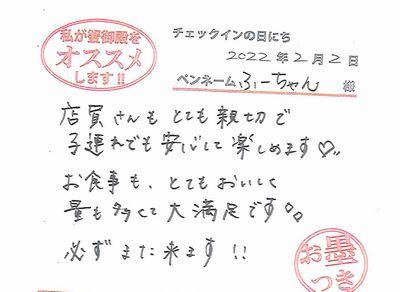 私が蟹御殿を
オススメ
します!!
チェックインの日にち
2022年2月2日
ペンネーム ふーちゃん 様
店員さんもとても親切で
子連れでも安心して楽しめます♡
お食事も、とてもおいしく
量も多くて大満足です
必ずまた来ます!!
お墨
つき